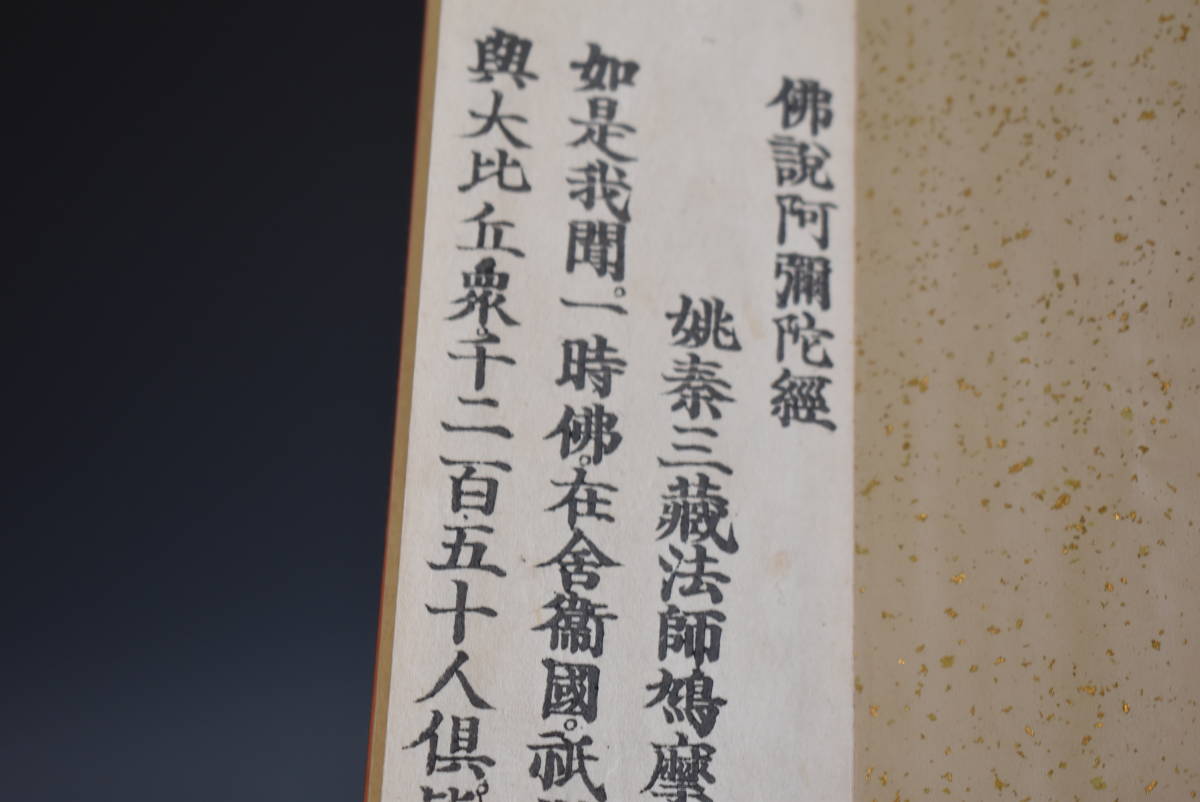 佛說阿彌陀經
姚秦三藏法師鳩摩
如是我聞。一時佛。在舍衞國。祇
與大比丘衆。千二百五十人俱。